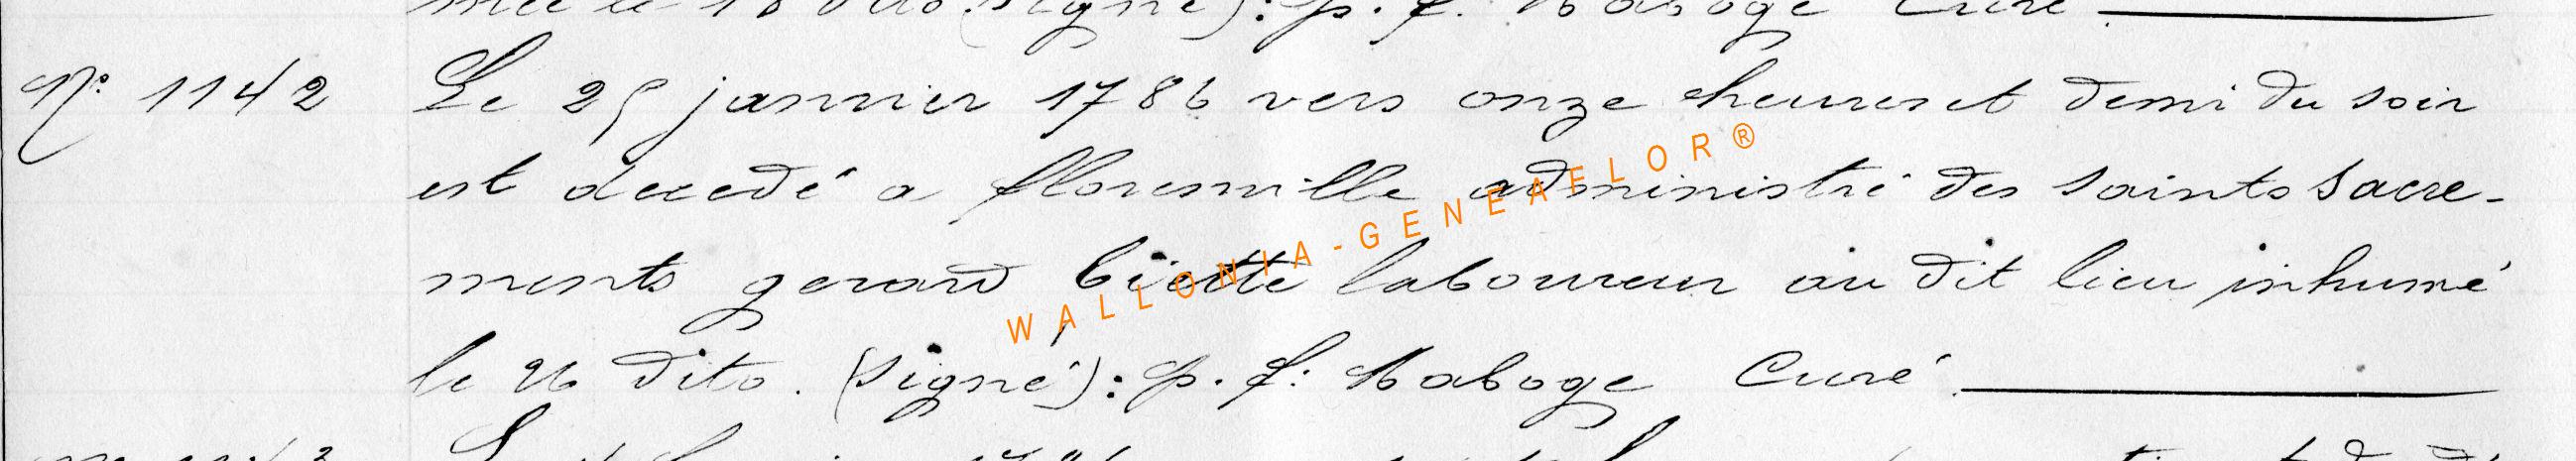 née le 18 dito (signé): p. f. Naboge Curé
N° 1142 Le 25 janvier 1786 vers onze heures et demi du soir
est decedé a florenville administré des saints sacre-
ments gerard biette laboureur au dit lieu inhumé
le 26 dito. (signé): p. f: Naboge Curé
WALLONIA-GENEAFLOR®